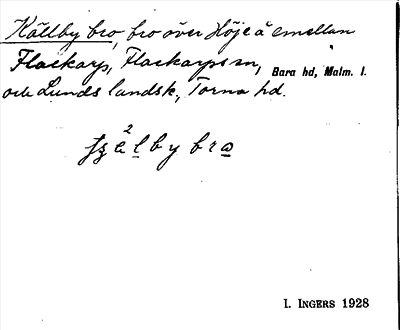 Källby bro, bro över Höje å emellan
Flackarp, Flackarps sn, Bara hd, Malm. l.
och Lunds landsk., Torna hd.
I. INGERS 1928